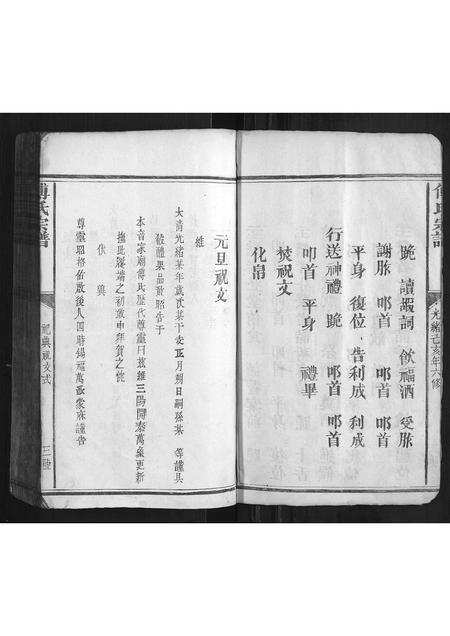 傅氏宗譜
光緒己亥年六修
跪 讀嘏詞 飲福酒 受胙
謝胙 叩首 叩首 叩首
平身 復位 告利成 利成
行送神禮 跪 叩首 叩首
叩首 平身 禮畢
焚祝文
化帛
元旦祝文
維
大清光緒某年歲次某干支正月朔日嗣孫某 等謹具
殽醴果品致昭告于
本音家廟傅氏歷代尊靈曰茲維三陽開泰萬彙更新
撫此履端之初敢申拜賀之忱
伏冀
尊靈昭格佑啟後人四時錫福萬叢蒙庥謹告
傅氏宗譜
祀典祝文式
三陸